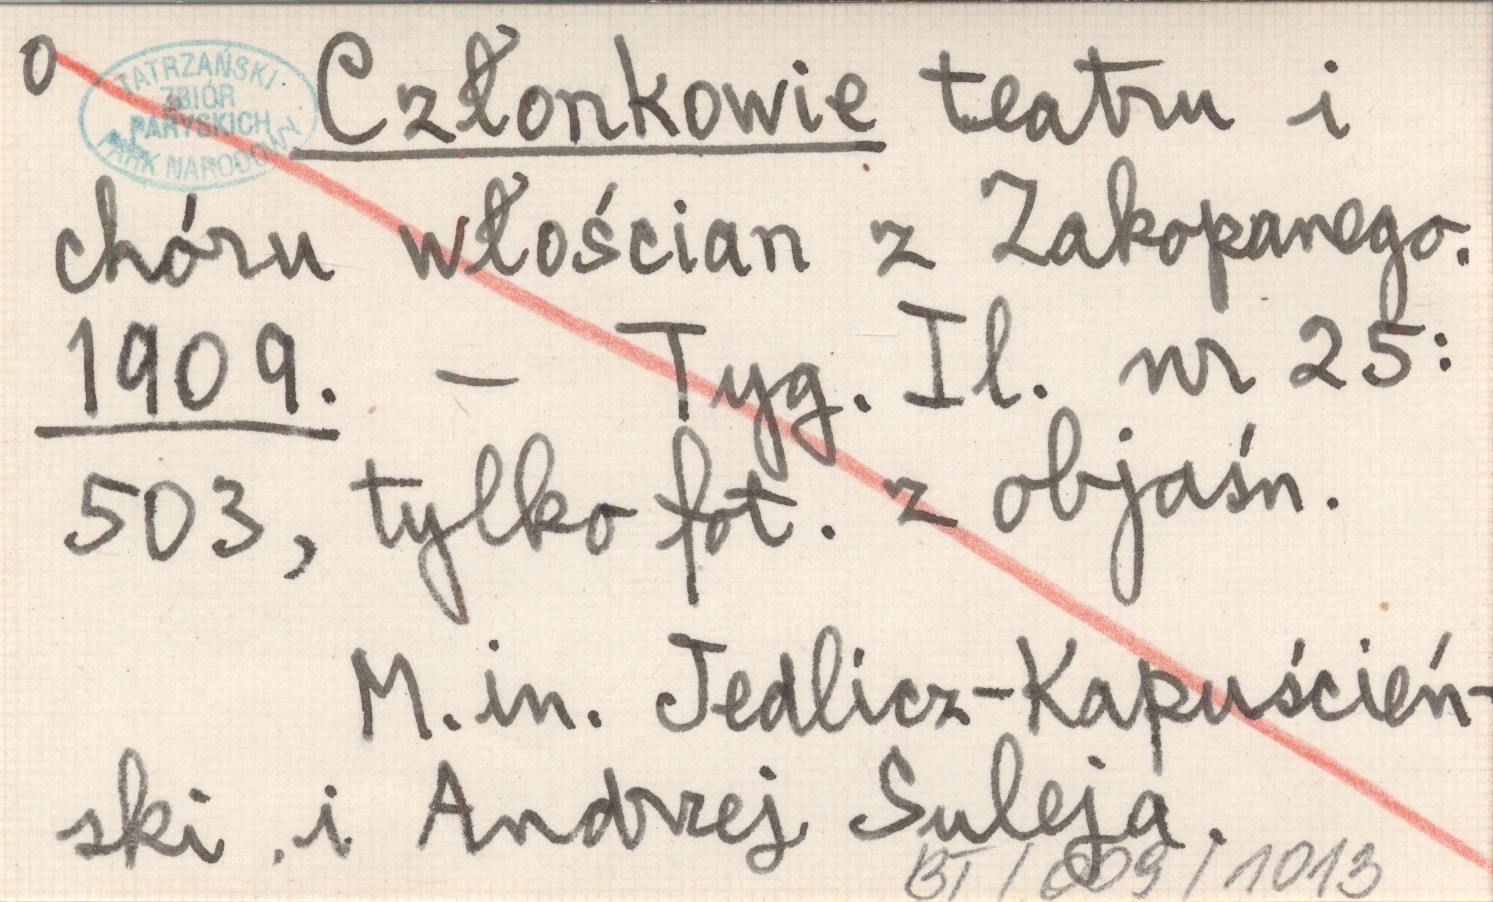 o
TATRZAŃSKI
ZBIÓR
PARYSKICH
PARK NARODOWY
Członkowie teatru i
chóru włościan z Zakopanego.
1909. – Tyg. Il. nr 25:
503, tylko fot. z objaśn.
M. in. Jedlicz-Kapuścień-
ski i Andrzej Suleja.
BT / 009 / 1013